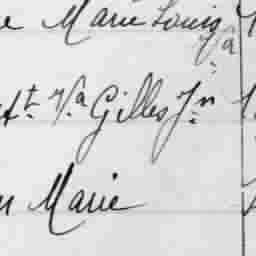 e Marie Louis
Va
At. Va Gilles Jn
n Marie